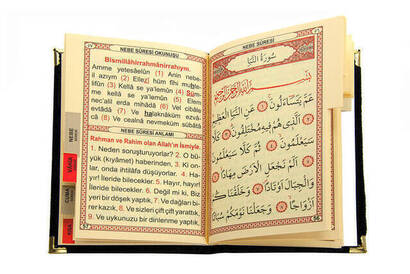 NEBE SÛRESİ OKUNUŞU
Bismillâhirrahmânirrahıym.
Amme yetesâelûn (1) Anin nebe-
il azıym (2) Ellezî hüm fîhi muhte-
lifûn (3) Kellâ se ya'lemûn (4) Süm-
me kellâ se ya'lemûn (5) Elem
nec'alil erda mihâdâ (6) Vel cibâle
evtâdâ (7) Ve halaknâküm ezvâ-
câ (8) Ve cealnâ nevmeküm sübâtâ
NEBE SÛRESİ ANLAMI
Rahman ve Rahim olan Allah'ın İsmiyle.
1. Neden soruşturuyorlar? 2. O bü-
yük (kıyâmet) haberinden, 3. Ki on-
lar, onda ihtilâfa düşüyorlar. 4. Ha-
yır! İleride bilecekler. 5. Hayır, hayır!
İleride bilecekler. 6. Değil mi ki, Biz
yeri bir döşek yaptık. 7. Ve dağları bi-
rer kazık, 8. Ve sizleri çift çift yarattık,
9. Ve uykunuzu bir dinlenme yaptık,
NEBE
CUMA
NEBE SÛRESİ
سُورَةُ النَّبَإِ
بِسْمِ اللّٰهِ الرَّحْمٰنِ الرَّحِيمِ
عَمَّ يَتَسَاءَلُونَ ﴿١﴾ عَنِ النَّبَإِ الْعَظِيمِ
﴿٢﴾ اَلَّذِى هُمْ فِيهِ مُخْتَلِفُونَ ﴿٣﴾ كَلَّا
سَيَعْلَمُونَ ﴿٤﴾ ثُمَّ كَلَّا سَيَعْلَمُونَ
﴿٥﴾ اَلَمْ نَجْعَلِ الْاَرْضَ مِهَادًا ﴿٦﴾
وَالْجِبَالَ اَوْتَادًا ﴿٧﴾ وَخَلَقْنَاكُمْ
اَزْوَاجًا ﴿٨﴾ وَجَعَلْنَا نَوْمَكُمْ سُبَاتًا